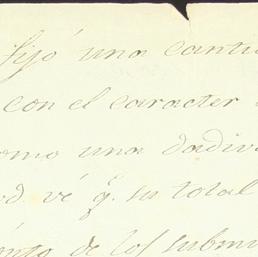 fijó una canti
con el caracter
omo una dadiva
vd. vé q.e su total
ento de los submi